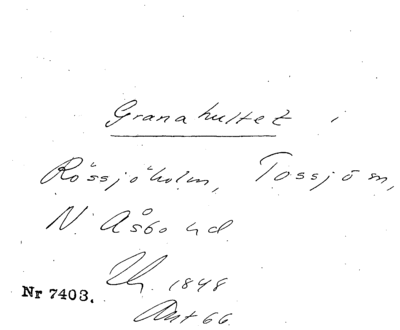 Granahultet i
Rössjöholm, Tossjö sn,
N. Åsbo hd
Uh. 1848
Nr 7403.
Ant 66